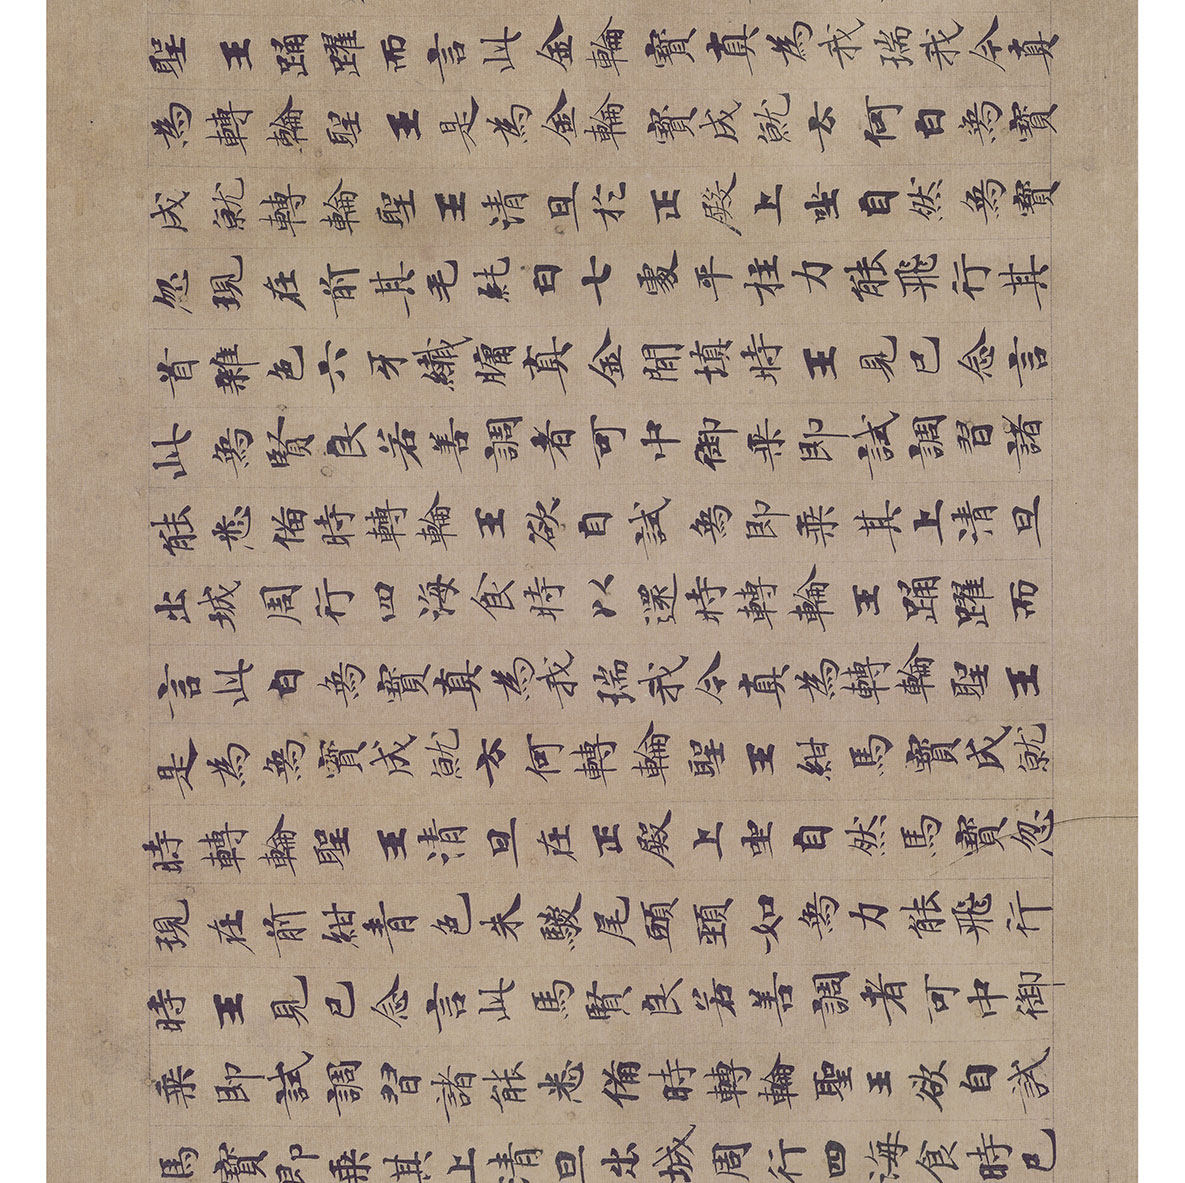 聖王踊躍而言此金輪寶真為我瑞我今真
為轉輪聖王是為金輪寶成就云何白象寶
成就轉輪聖王清旦於正殿上坐自然象寶
忽現在前其毛純白七處平柱力能飛行其
首雜色六牙纖𦟛真金間填時王見已念言
此象賢良若善調者可中御乘即試調習諸
能悉備時轉輪王欲自試象即乘其上清旦
出城周行四海食時以還時轉輪王踊躍而
言此白象寶真為我瑞我今真為轉輪聖王
是為象寶成就云何轉輪聖王紺馬寶成就
時轉輪聖王清旦在正殿上坐自然馬寶忽
現在前紺青色朱騣尾頭頸如象力能飛行
時王見已念言此馬賢良若善調者可中御
乘即試調習諸能悉備時轉輪聖王欲自試
馬寶即乘其上清旦出城周行四海食時已